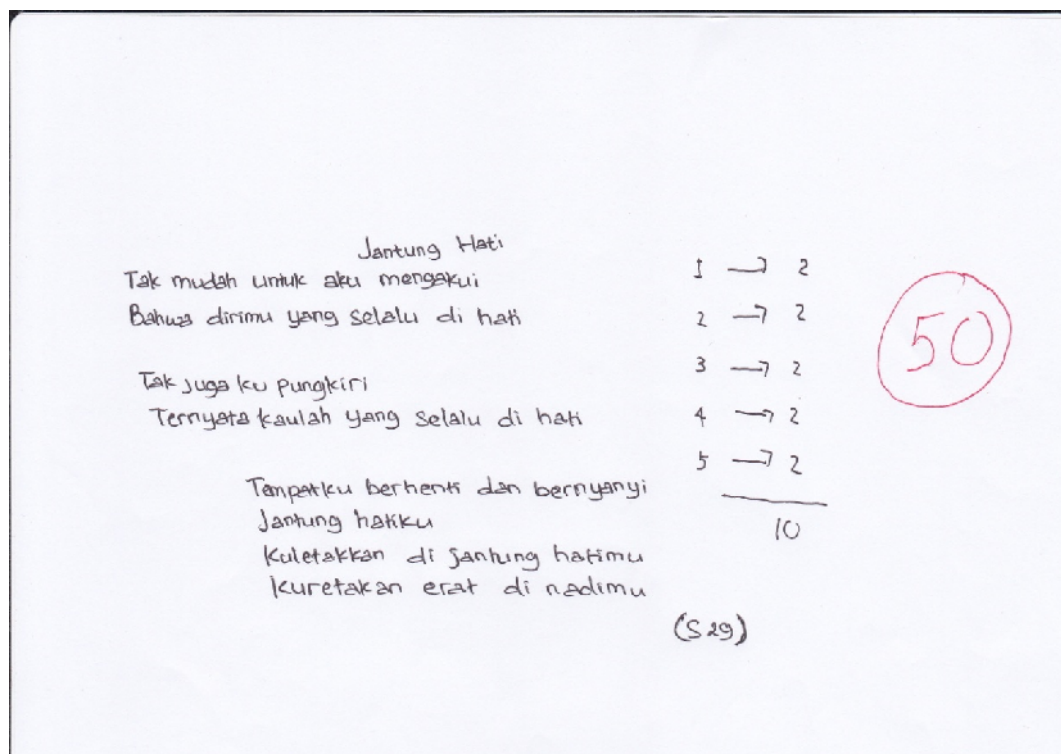 Jantung Hati
Tak mudah untuk aku mengakui
Bahwa dirimu yang selalu di hati
Tak juga ku pungkiri
Ternyata kaulah yang selalu di hati
Tempatku berhenti dan bernyanyi
Jantung hatiku
Kuletakkan di jantung hatimu
Kuretakan erat di nadimu
(S 29)
1 → 2
2 → 2
3 → 2
4 → 2
5 → 2
10
50